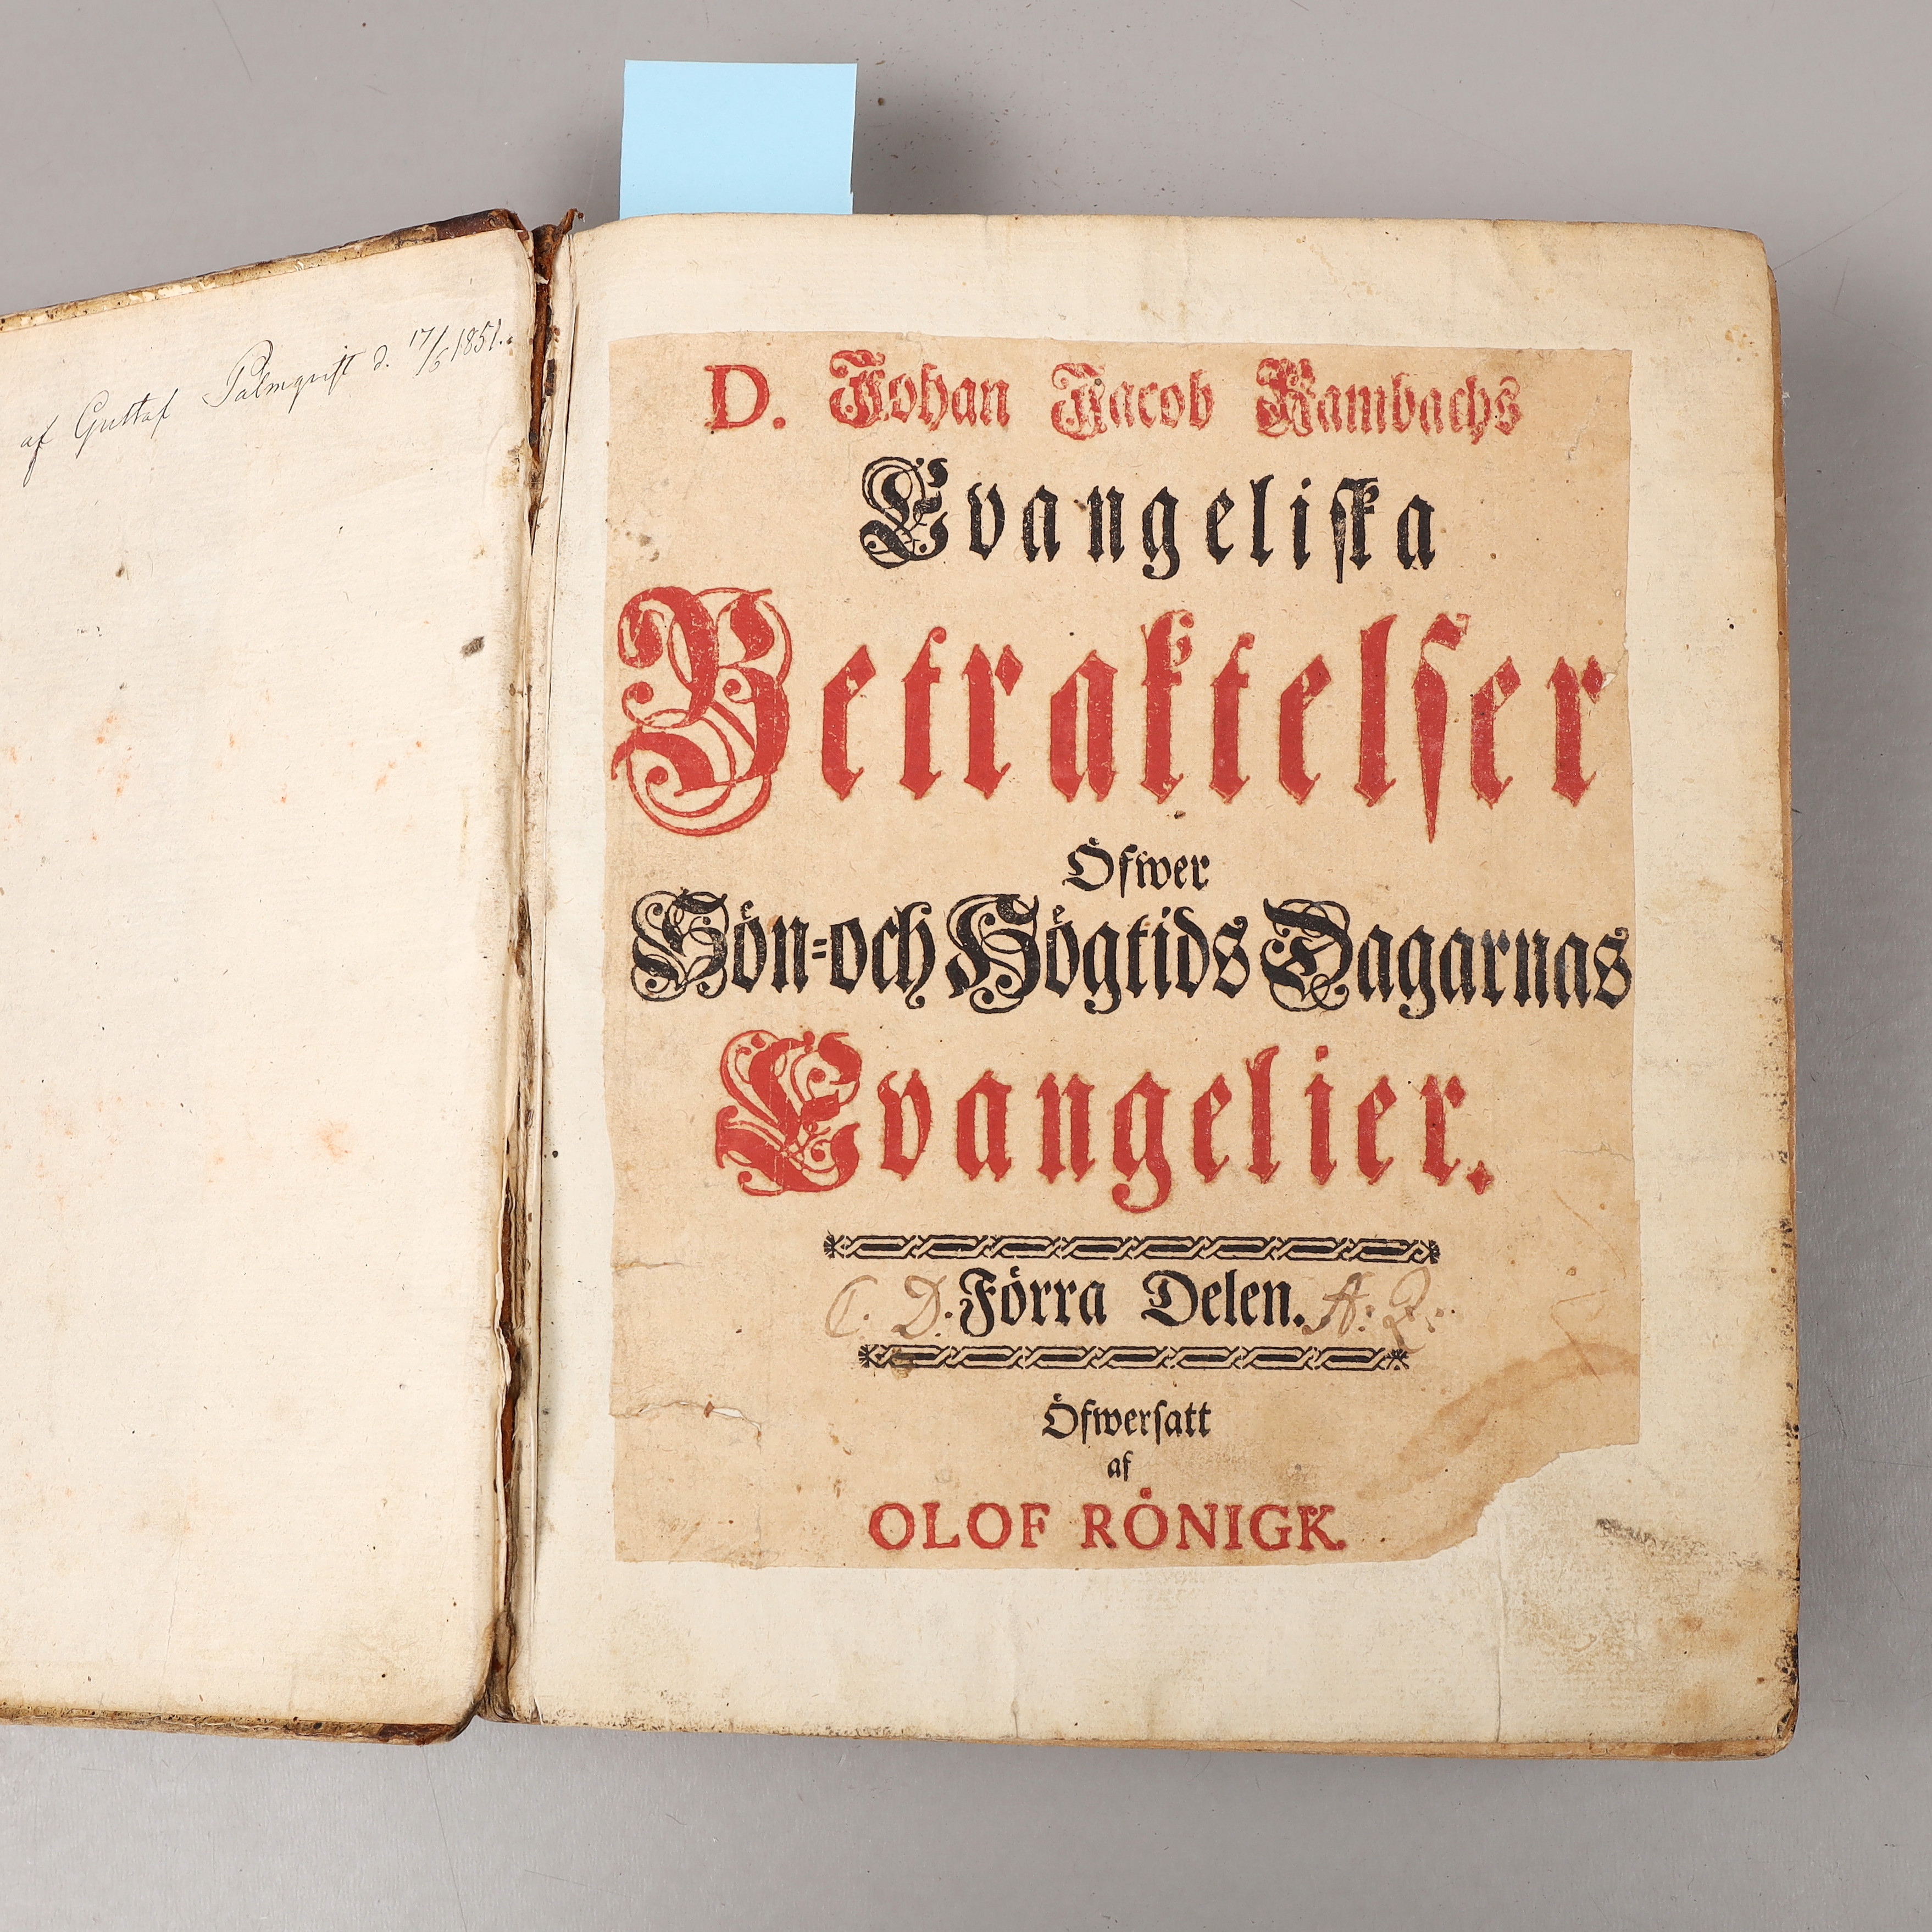 af Gustaf Palmquist d. 17/5 1851.
D. Johan Jacob Rambachs
Evangeliſka
Betraktelſer
Öfwer
Sön-och Högtids Dagarnas
Evangelier.
C. D. Förra Delen. A: Z:
Öfwerſatt
af
OLOF RÖNIGK.